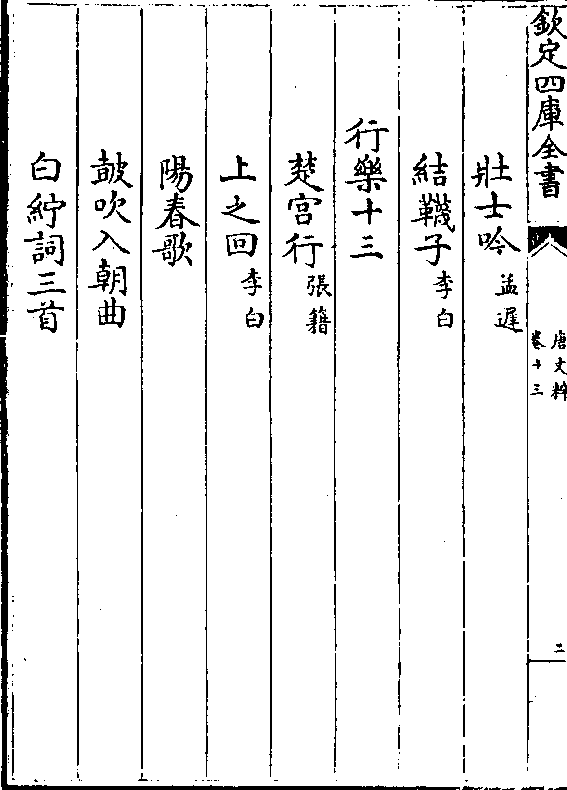 欽定四庫全書
唐文粹
卷十三
二
壮士吟孟遲
結韈子李白
行樂十三
楚宫行張籍
上之回李白
陽春歌
皷吹入朝曲
白紵詞三首